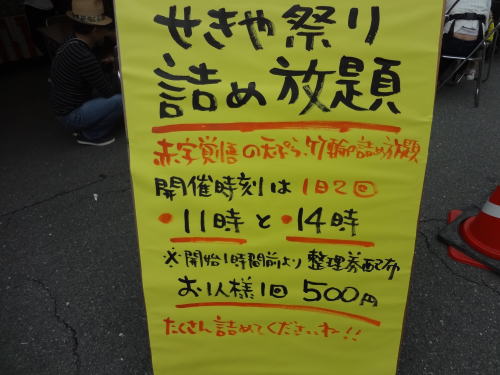 せきや祭り
詰め放題
赤字覚悟の天ぷら、竹輪の詰め放題
開催時刻は1日2回
・11時と・14時
※開始1時間前より整理券配布
お1人様1回 500円
たくさん詰めてくださいね!!